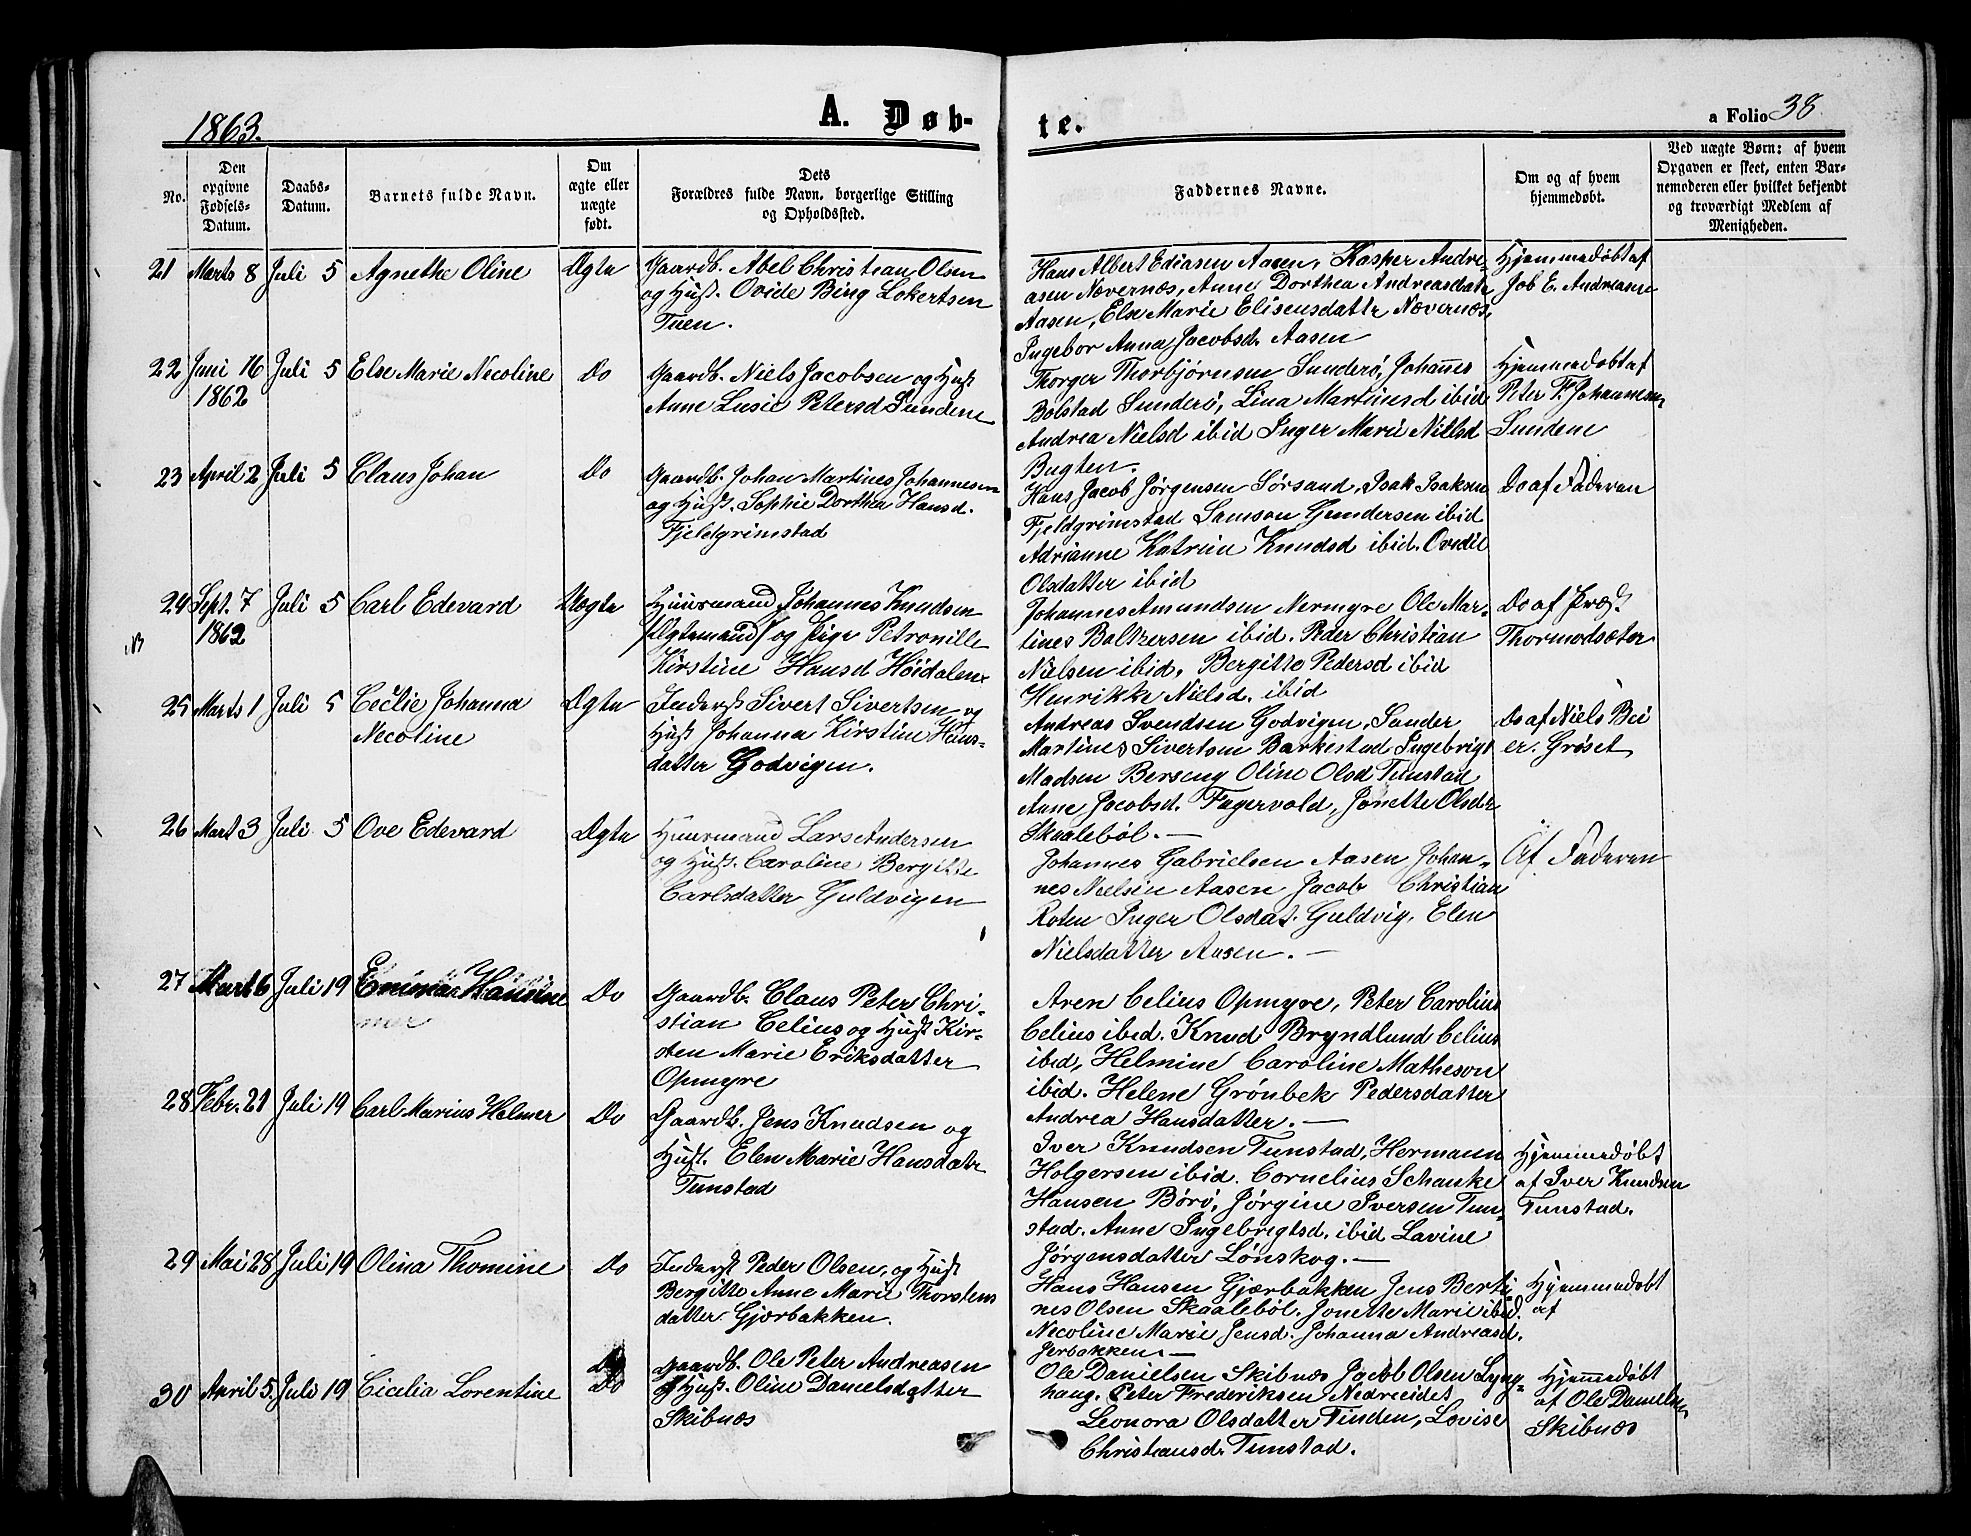 1863.
A. Døb-
te.
a Folio 38.
No.
Den
opgivne
Fødsels-
Datum.
Daabs-
Datum.
Barnets fulde Navn.
Om
ægte eller
uægte
født.
Dets
Forældres fulde Navn, borgerlige Stilling
og Opholdssted.
Faddernes Navne.
Om og af hvem
hjemmedøbt.
Ved uægte Børn: af hvem
Opgaven er skeet, enten Bar-
nemoderen eller hvilket bekjendt
og troværdigt Medlem af
Menigheden.
21 Marts 8 Juli 5 Agnethe Oline Ægte
Gaardb. Abel Christian Olsen
og Hust. Ovide Bing Lokertsen
Tuen.
Hans Albert Ediasen Aasen, Kasper Andre-
asen Nævernæs, Anne Dorthea Andreasdatr
Aasen, Else Marie Elisensdattr Nævernæs,
Ingebor Anna Jacobsd. Aasen
Hjemmedøbt af
Job E. Andreasen
22 Juni 16 Juli 5 Else Marie Necoline Do
1862
Gaardb. Niels Jacobsen og Hust
Anne Lusie Petersd Sundene
Thorger Thorbjörnsen Sunderö, Johannes
Bolstad Sunderö, Lina Martinsd ibid
Andrea Nielsd ibid Inger Marie Nielsd
Bugten.
Hjemmedøbt af
Peter F. Johannesen
Sundene
23 April 2 Juli 5 Claus Johan Do
Gaardb. Johan Martines Johannesen
og Hust. Sophie Dorthea Hansd.
Fjeldgrimstad
Hans Jacob Jörgensen Sörsand, Isak Isaksen
Fjeldgrimstad Samson Gundersen ibid
Adrianne Katrine Knudsd ibid. Ovedie
Olsdatter ibid
Do af Faderen
24 Sept. 7 Juli 5 Carl Edevard Uægte
1862
Huusmand Johannes Knudsen
(Ægtemand) og Pige Petronille
Kirstine Hansd Höidalen
Johannes Amundsen Nermyre Ole Mar-
tines Baltzersen ibid. Peder Christian
Nielsen ibid. Bergitte Pedersd ibid
Henrikke Nielsd. ibid
Do af Præst.
Thormodsæter
25 Marts 1 Juli 5 Cecilie Johanna Ægte
Necoline
Inderst Sivert Sivertsen og
Hust Johanna Kirstine Hans-
datter Godvigen.
Andreas Svendsen Godvigen, Sander
Martines Sivertsen Barkestad Ingebrigt
Madsen Berseng Oline Olsd Tunstad
Anne Jacobsd. Fagervold, Jonette Olsdr
Skaaleböl. —
Do af Niels Bei
er. Gröset
26 Mart 3 Juli 5 Ove Edevard Ægte
Huusmand Lars Andersen
og Hust. Caroline Bergitte
Carlsdatter Guldvigen
Johannes Gabrielsen Aasen Johan-
nes Nielsen Aasen Jacob Christian
Roten Inger Olsdat. Guldvig, Elen
Nielsdatter Aasen. —
Af Faderen
27 Mart 6 Juli 19 Emma Hansine Do
Gaardb. Claus Peter Chri-
stian Celius og Hust Kir-
sten Marie Eriksdatter
Opmyre
Aren Celius Opmyre, Peter Carolius
Celius ibid. Knud Bryndlund Celius
ibid, Helmine Caroline Matheson
ibid. Helene Grönbek Pedersdatter
Andrea Hansdatter. —
28 Febr. 21 Juli 19 Carl Marius Helmer Do
Gaardb. Jens Knudsen og
Hust. Elen Marie Hansdatr
Tunstad
Iver Knudsen Tunstad, Hermann
Holgersen ibid. Cornelius Schanke
Hansen Börö, Jörgine Iversen Tun-
stad. Anne Ingebregtsd. ibid Lavine
Jörgensdatter Lönskog. —
Hjemmedøbt
af Iver Knudsen
Tunstad.
29 Mai 28 Juli 19 Olina Thomine Do
Inderst Peder Olsen, og Hust
Bergitte Anne Marie Thorstens
datter. Gjærbakken.
Hans Hansen Gjærbakken Jens Berti-
nes Olsen Skaaleböl. Jonette Marie ibid.
Necoline Marie Jensd. Johanna Andreasd.
Jerbakken. —
Hjemmedøbt
af
30 April 5. Juli 19 Cicelia Lorentine Do
Gaardb. Ole Peter Andreasen
og Hust. Oline Danielsdatter
Skibnæs
Ole Danielsen Skibnæs Jacob Olsen Lyng-
haug. Peter Frederiksen Nedreeidet
Leonora Olsdatter Tinden, Lovise
Christiansd. Tunstad.
Hjemedøbt
af Ole Danielsen
Skibnæs